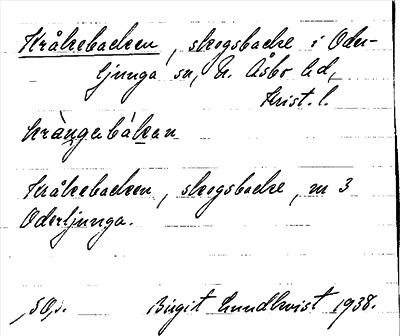 Kråkebacken, skogsbacke i Oder-
ljunga sn, N. Åsbo hd,
Krist. l.
Kråkebacken, skogsbacke, m 3
Oderljunga.
Birgit Lundkvist 1938.